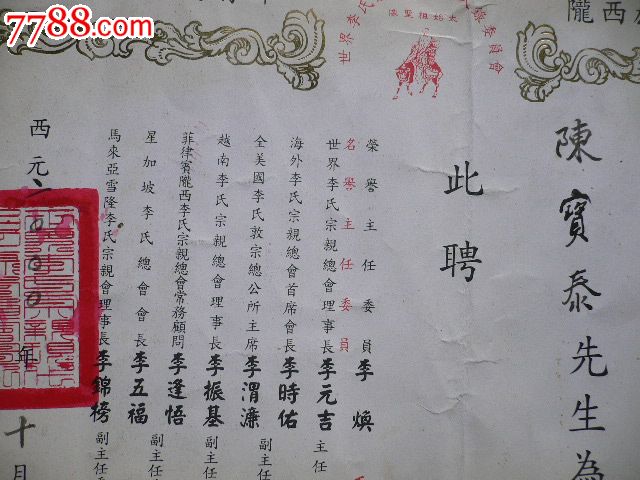 7788.com
隴西
世界李氏
太始祖聖像
委員會
陳寶泰先生為
此聘
榮譽主任委員李煥
名譽主任委員
世界李氏宗親總會理事長李元吉
主任
海外李氏宗親總會首席會長李時佑
全美國李氏敦宗總公所主席李渭濂
副主任
越南李氏宗親總會理事長李振基
副主任
菲律賓隴西李氏宗親總會常務顧問李逢悟
星加坡李氏總會會長李五福
副主任
馬來亞雪隆李氏宗親會理事長李錦榜
副主任委
西元二〇〇〇年十月